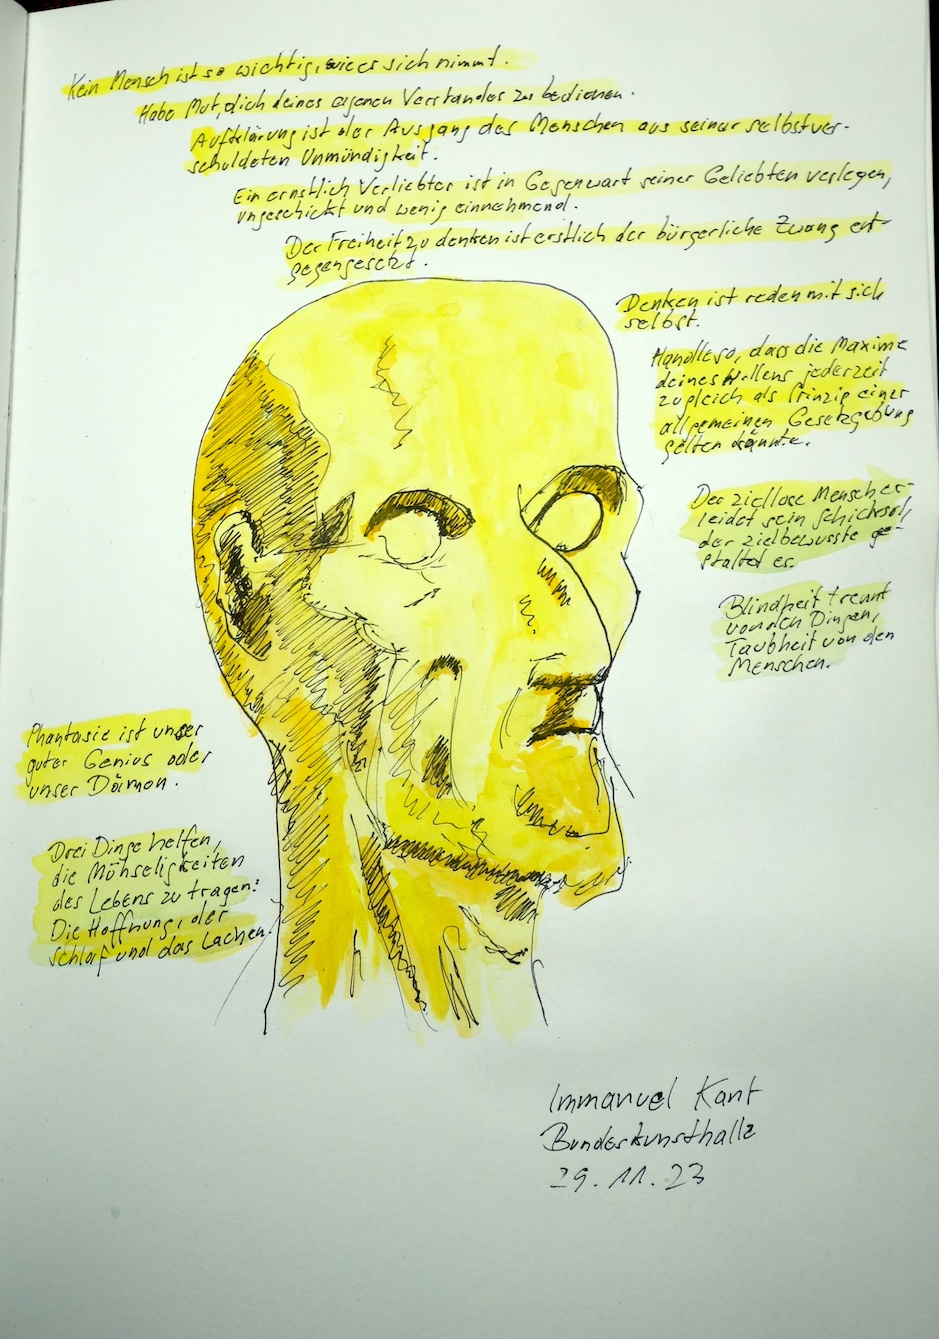 Kein Mensch ist so wichtig, wie er sich nimmt.
Habe Mut, dich deines eigenen Verstandes zu bedienen.
Aufklärung ist der Ausgang des Menschen aus seiner selbstver-
schuldeten Unmündigkeit.
Ein ernstlich Verliebter ist in Gegenwart seiner Geliebten verlegen,
ungeschickt und wenig einnehmend.
Der Freiheit zu denken ist erstlich der bürgerliche Zwang ent-
gegengesetzt.
Denken ist reden mit sich
selbst.
Handle so, dass die Maxime
deines Willens jederzeit
zugleich als Prinzip einer
allgemeinen Gesetzgebung
gelten könnte.
Der ziellose Mensch er-
leidet sein Schicksal,
der zielbewusste ge-
staltet es.
Blindheit trennt
von den Dingen,
Taubheit von den
Menschen.
Phantasie ist unser
guter Genius oder
unser Dämon.
Drei Dinge helfen,
die Mühseligkeiten
des Lebens zu tragen:
Die Hoffnung, der
Schlaf und das Lachen.
Immanuel Kant
Bundeskunsthalle
29.11.23